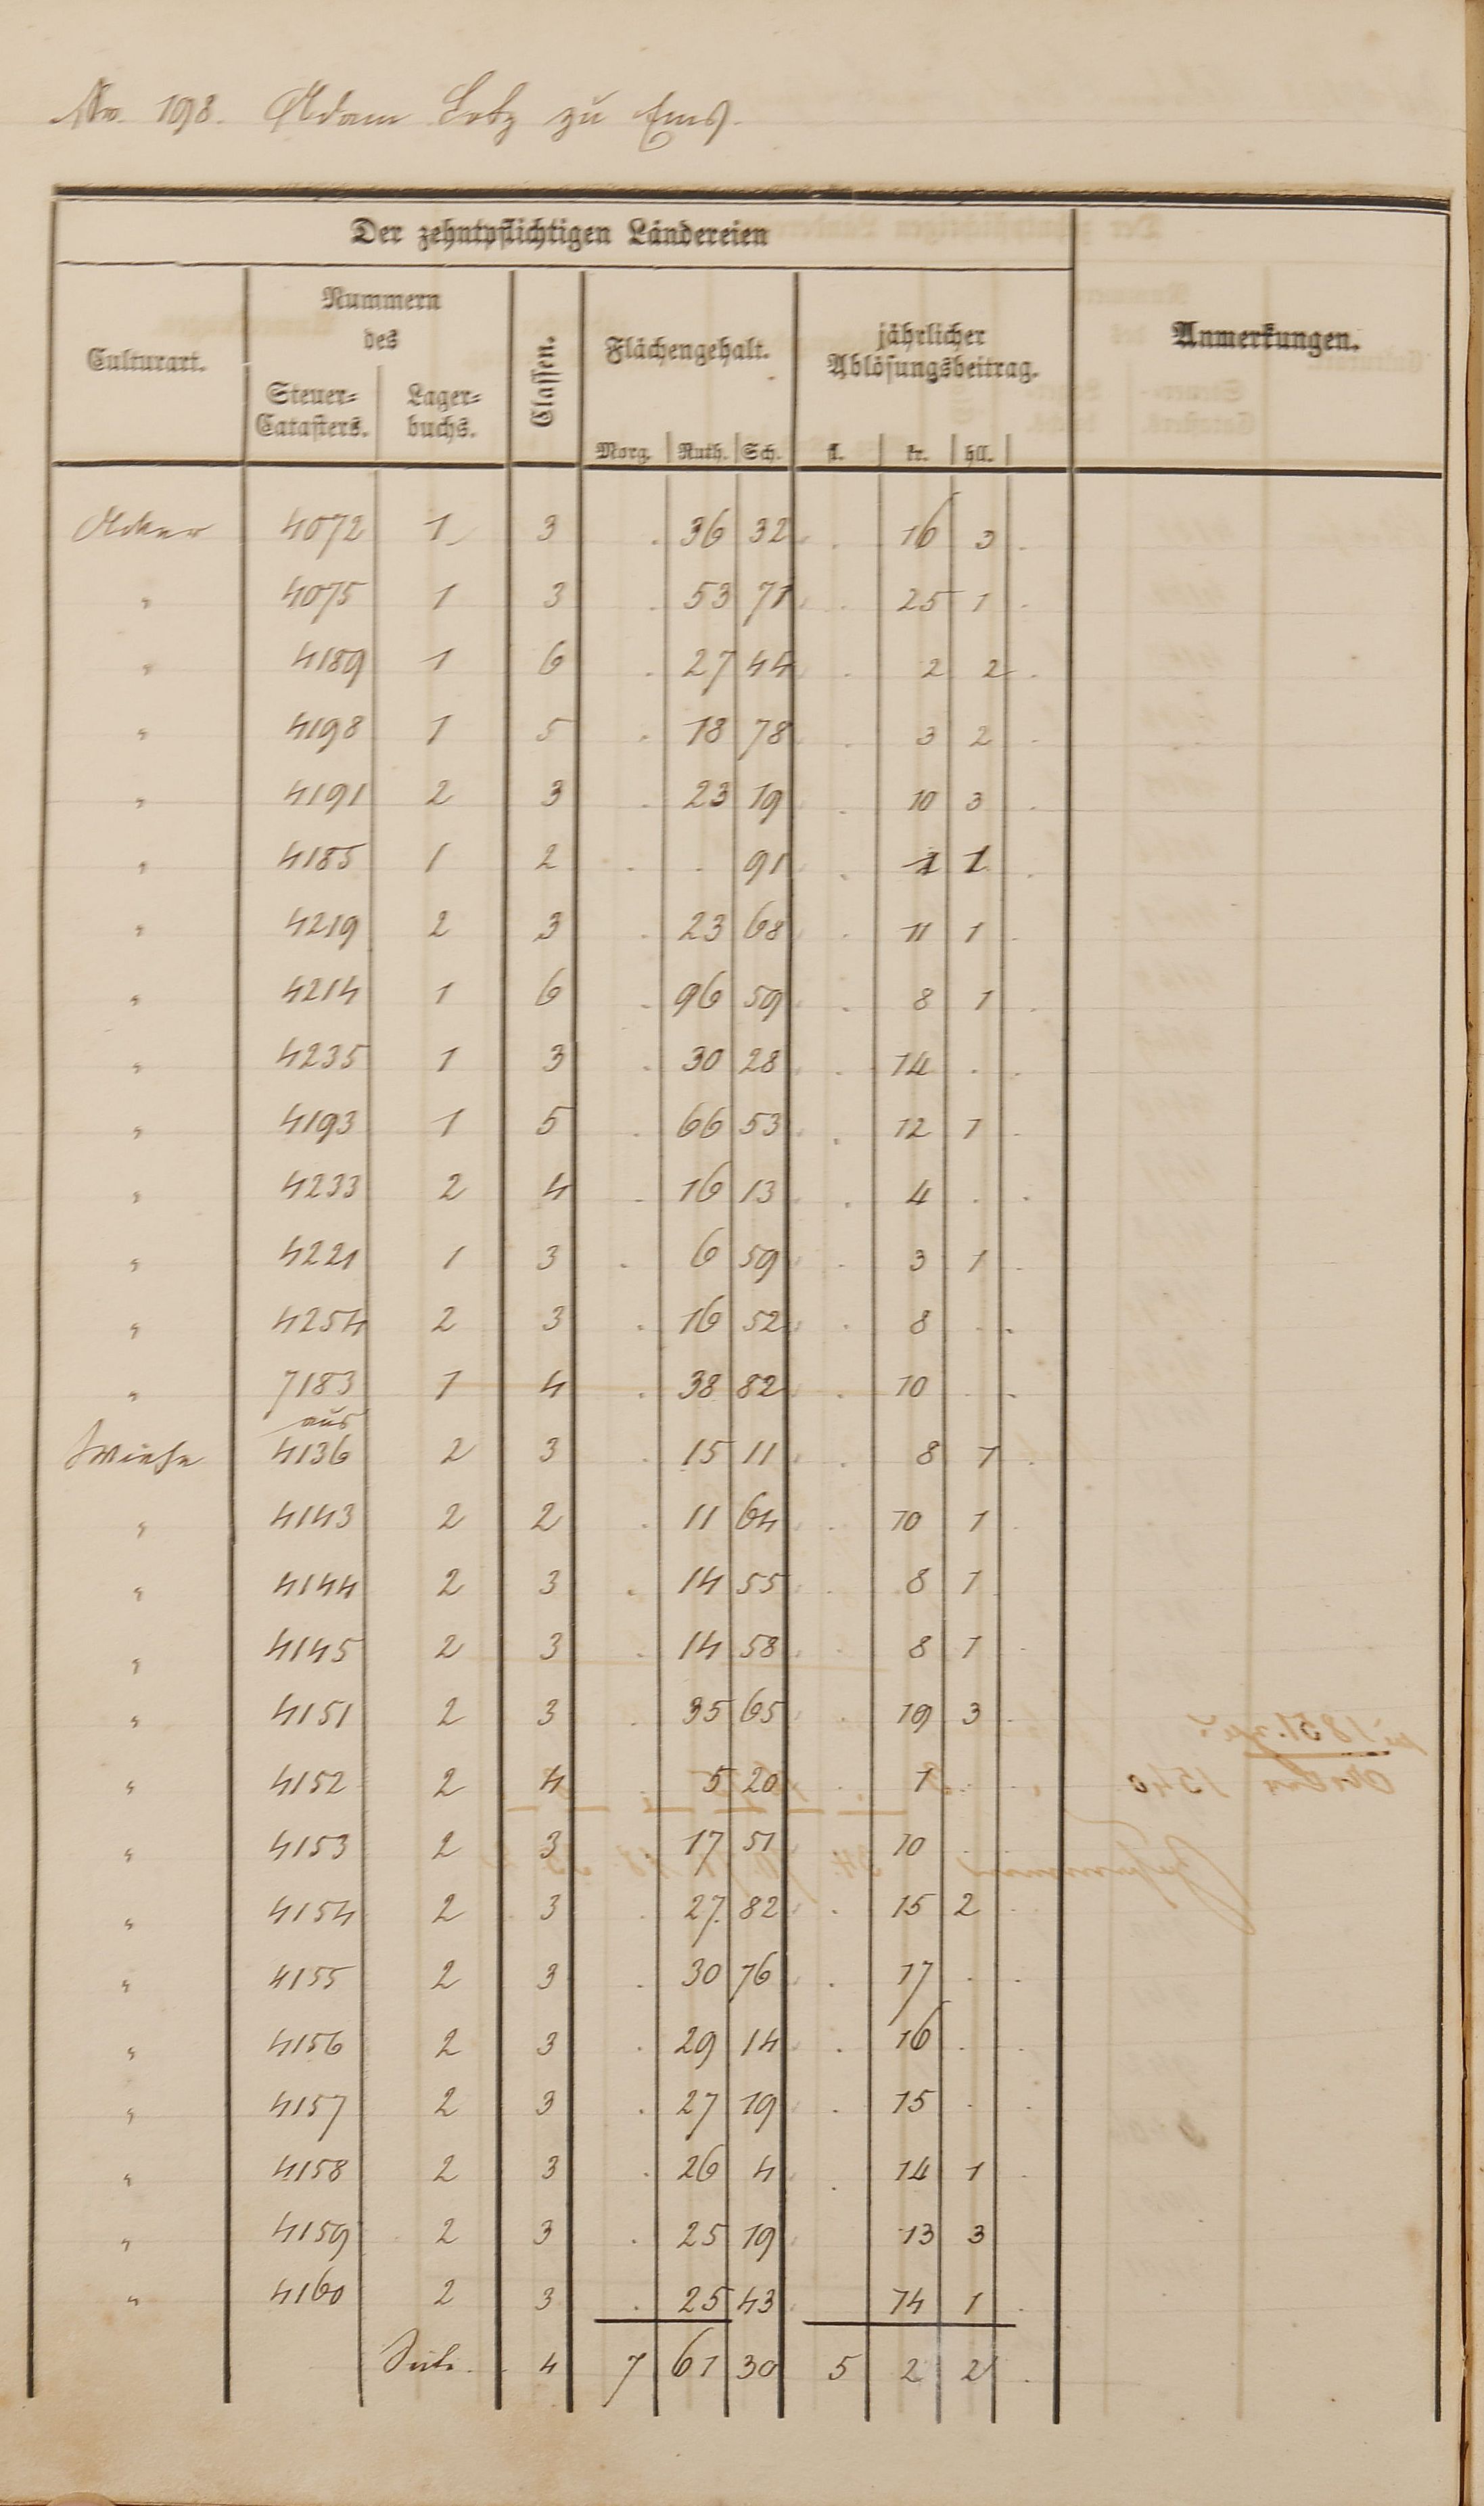 No. 198. Adam Lotz zu Ems.
Der zehntpflichtigen Ländereien
Anmerkungen.
Culturart.
Nummern
des
Steuer-
Catasters.
Lager-
buchs.
Classen.
Flächengehalt.
Morg. Ruth. Sch.
jährlicher
Ablösungsbeitrag.
fl. kr. hll.
Acker 4072 1 3 . 36 32 . 16 3 .
" 4075 1 3 . 53 71 . 25 1 .
" 4189 1 6 . 27 44 . 2 2 .
" 4198 1 5 . 18 78 . 3 2 .
" 4191 2 3 . 23 19 . 10 3 .
" 4185 1 2 . . 91 . 1 .
" 4219 2 3 . 23 68 . 11 1 .
" 4214 1 6 . 96 59 . 8 1 .
" 4235 1 3 . 30 28 . 14 . .
" 4193 1 5 . 66 53 . 12 1 .
" 4233 2 4 . 16 13 . 4 . .
" 4221 1 3 . 6 59 . 3 1 .
" 4254 2 3 . 16 52 . 8 . .
" 7183 1 4 . 38 82 . 10 . .
aus
Wiese 4136 2 3 . 15 11 . 8 1 .
" 4143 2 2 . 11 64 . 10 1 .
" 4144 2 3 . 14 55 . 8 1 .
" 4145 2 3 . 14 58 . 8 1 .
" 4151 2 3 . 35 65 . 19 3 .
" 4152 2 4 . 5 20 . 1 . .
" 4153 2 3 . 17 51 . 10 . .
" 4154 2 3 . 27 82 . 15 2 .
" 4155 2 3 . 30 76 . 17 . .
" 4156 2 3 . 29 14 . 16 . .
" 4157 2 3 . 27 19 . 15 . .
" 4158 2 3 . 26 4 . 14 1 .
" 4159 2 3 . 25 19 13 3
" 4160 2 3 . 25 43 . 14 1 .
Seite. 4 7 61 30 5 2 2 .